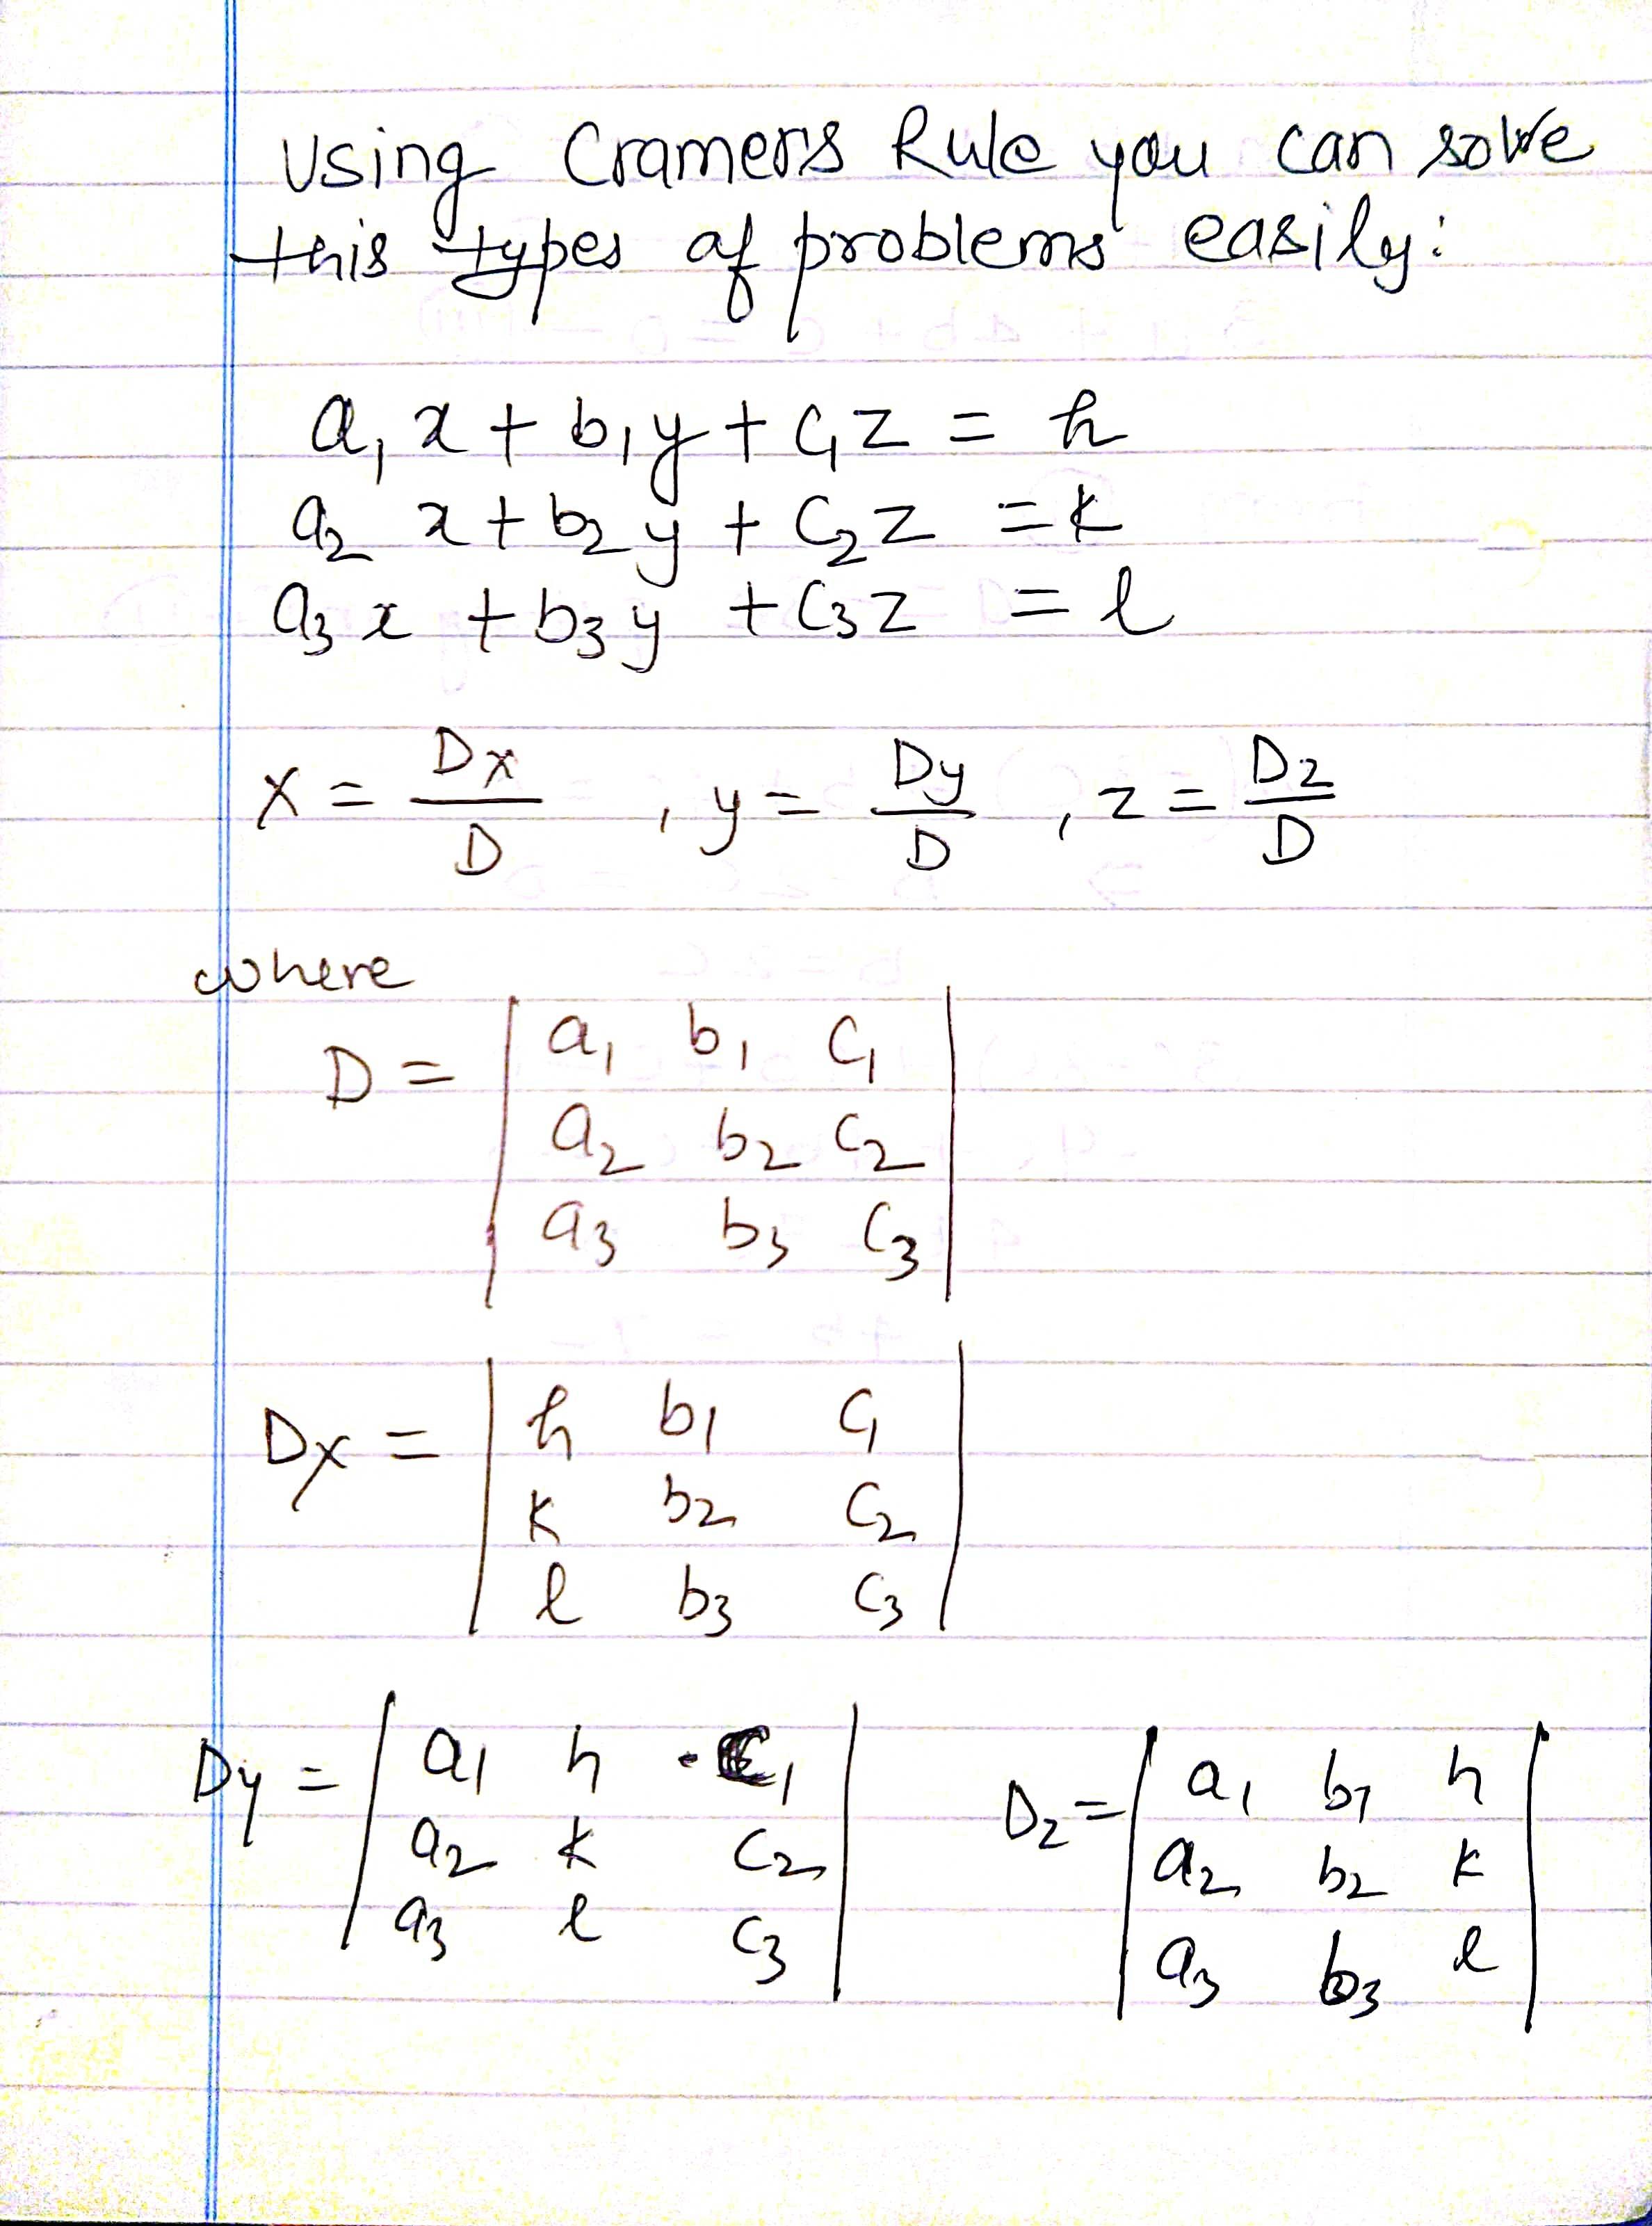 Using Cramers Rule you can solve
this types of problems easily:
a₁ x + b₁y + c₁z = h
a₂ x + b₂ y + c₂z = k
a₃ x + b₃y + c₃z = l
x = Dx/D , y = Dy/D , z = Dz/D
where
D = | a₁ b₁ c₁ |
| a₂ b₂ c₂ |
| a₃ b₃ c₃ |
Dx = | h b₁ c₁ |
| k b₂ c₂ |
| l b₃ c₃ |
Dy = | a₁ h c₁ |
| a₂ k c₂ |
| a₃ l c₃ |
Dz = | a₁ b₁ h |
| a₂ b₂ k |
| a₃ b₃ l |